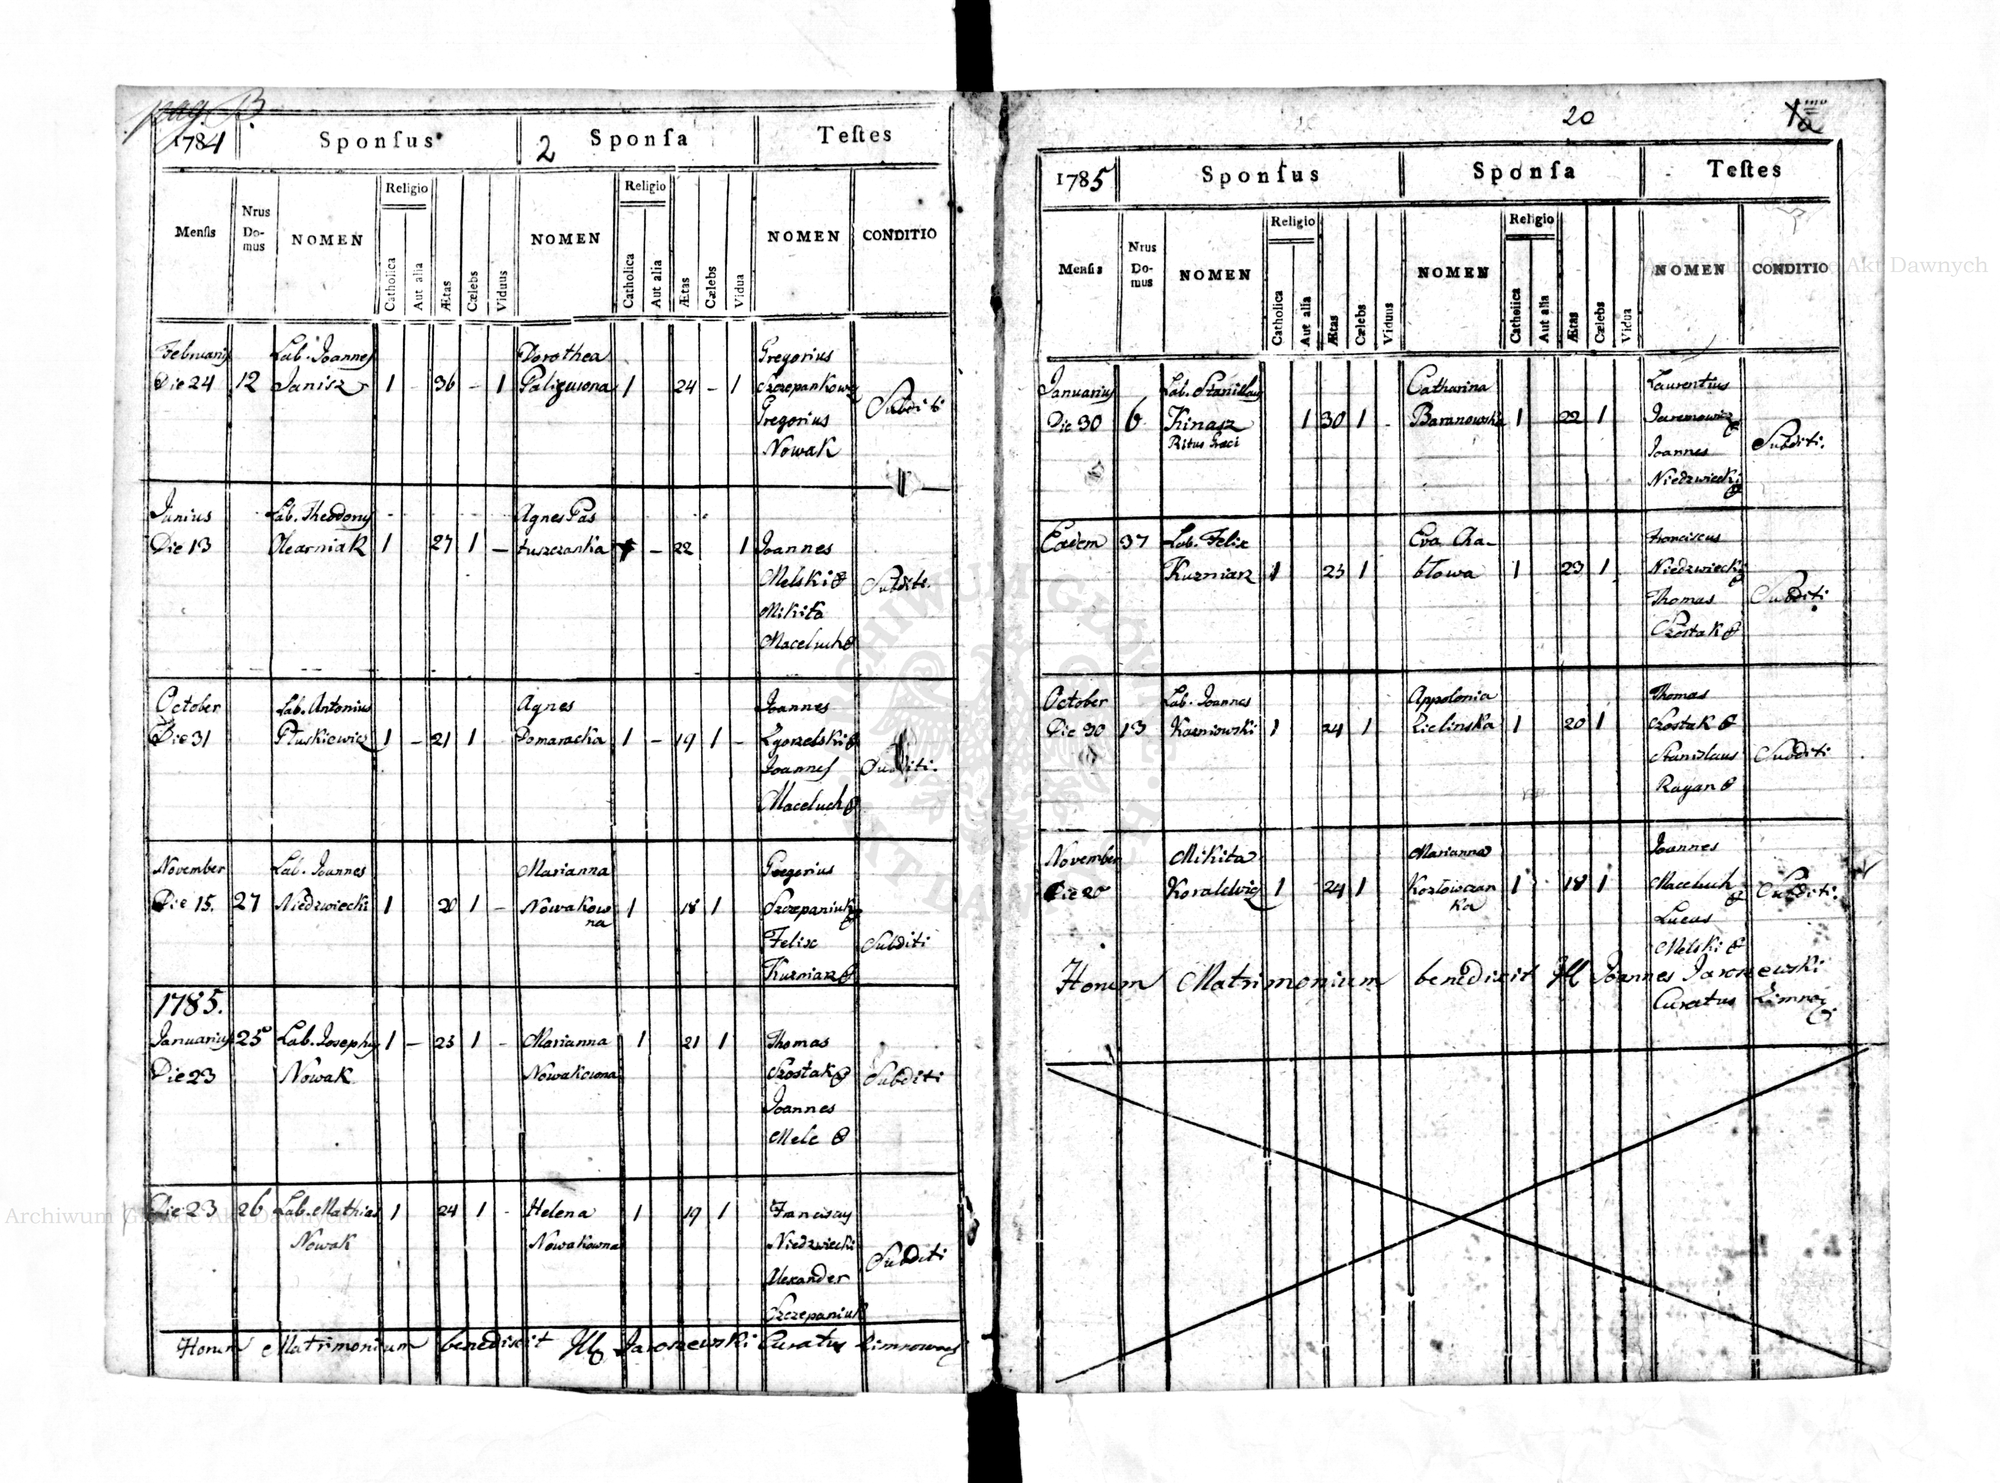 pag. B.
1784 Sponſus 2 Sponſa Teſtes
Menſis Nrus Do-mus NOMEN Religio Catholica Aut alia Ætas Cælebs Viduus NOMEN Religio Catholica Aut alia Ætas Cælebs Vidua NOMEN CONDITIO
Februarij Lab. Joannes Dorothea Gregorius
Die 24 12 Janisz 1 - 36 - 1 1 24 - 1 Szczepankowy
Gregorius Subditi
Nowak
Junius Lab. Theodorus Agnes Pas
Die 13 Olearniak 1 27 1 - tuszczanka 1 - 22 1 Joannes
Melski & Subditi
Mikita
Maceluch &
October Lab. Antonius Agnes Joannes
Die 31 Pluskiewicz 1 - 21 1 Pomaracka 1 - 19 1 - Zgorzelski &
Joannes Subditi.
Maceluch &
November Lab. Joannes Marianna Gregorius
Die 15. 27 Niedzwiecki 1 20 1 - Nowakow 1 18 1 Szczepaniuk &
na
Felix Subditi
Kuzniarz &
1785.
Januarius 25 Lab. Josephy 1 - 23 1 - Marianna 1 21 1 Thomas
Die 23 Nowak Nowakowna Szostak & Subditi
Joannes
Mele &
Die 23 26 Lab. Mathias 1 24 1 - Helena 1 19 1 Franciscus
Nowak Nowakowna Niedzwiecki Subditi
Alexander
Szczepaniuk
Horum Matrimonium benedixit Jaroszewski Curatus Zimnowod
20
1785 Sponſus Sponſa Teſtes
Menſis Nrus Do-mus NOMEN Religio Catholica Aut alia Ætas Cælebs Viduus NOMEN Religio Catholica Aut alia Ætas Cælebs Vidua NOMEN CONDITIO
Januarius Lab. Stanislaus Catharina Laurentius
Die 30 6 Kinasz 1 30 1 - Baranowska 1 22 1 Jaremowicz &
Ritus Graeci Joannes Subditi.
Niedzwiecki &
Eadem 37 Lab. Felix Eva Cha- Franciscus
Kuzniarz 1 23 1 blowa 1 23 1 Niedzwiecki &
Thomas Subditi
Szostak &
October Lab. Joannes Appolonia Thomas
Die 30 13 Kazniowski 1 24 1 Zielinska 1 20 1 Szostak &
Stanislaus Subditi
Rayan &
November Mikita Marianna Joannes
Die 20 1 24 1 Kozlowczan 1 18 1 Maceluch & Subditi.
ka
Lucas
Melski &
Horum Matrimonium benedixit Joannes Jaroszewski
Curatus
Archiwum Główne Akt Dawnych
ARCHIWUM GŁÓWNE AKT DAWNYCH
Archiwum Główne Akt Dawnych